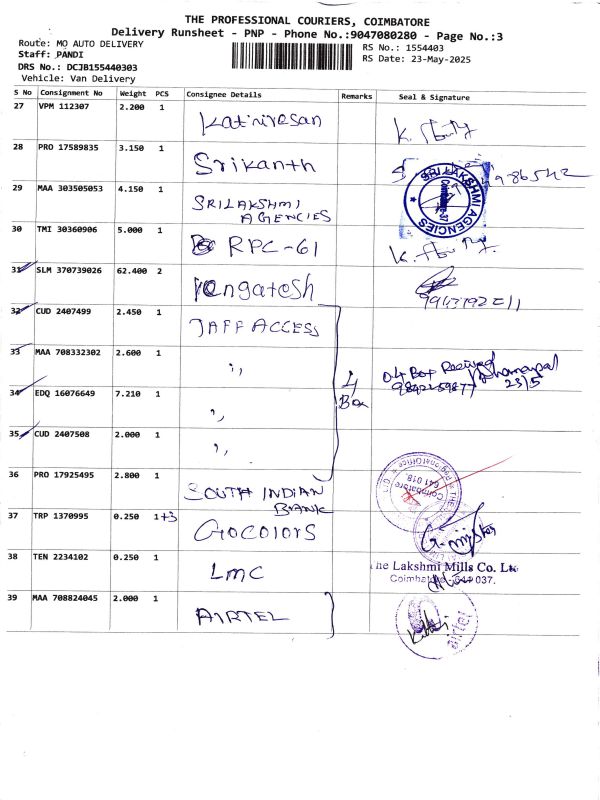 THE PROFESSIONAL COURIERS, COIMBATORE
Delivery Runsheet - PNP - Phone No.:9047080280 - Page No.:3
Route: MO AUTO DELIVERY
RS No.: 1554403
Staff: PANDI
RS Date: 23-May-2025
DRS No.: DCJB155440303
Vehicle: Van Delivery
S No Consignment No Weight PCS Consignee Details Remarks Seal & Signature
27 VPM 112307 2.200 1 Kathiresan
28 PRO 17589835 3.150 1 Srikanth
29 MAA 303505053 4.150 1 SRILAKSHMI AGENCIES
SRI LAKSHMI AGENCIES
Coimbatore-37
30 TMI 30360906 5.000 1 RPC-61
31 SLM 370739026 62.400 2 Vengatesh
32 CUD 2407499 2.450 1 JAFF ACCESS
33 MAA 708332302 2.600 1 ,, 4 Box 04 Box Received
23/5
34 EDQ 16076649 7.210 1 ,,
35 CUD 2407508 2.000 1 ,,
36 PRO 17925495 2.800 1 SOUTH INDIAN BANK
Regional Office
Coimbatore
641 018.
37 TRP 1370995 0.250 1+3 GOCOLORS
38 TEN 2234102 0.250 1 LMC
The Lakshmi Mills Co. Lt
Coimbatore - 641 037.
39 MAA 708824045 2.000 1 AIRTEL
airtel